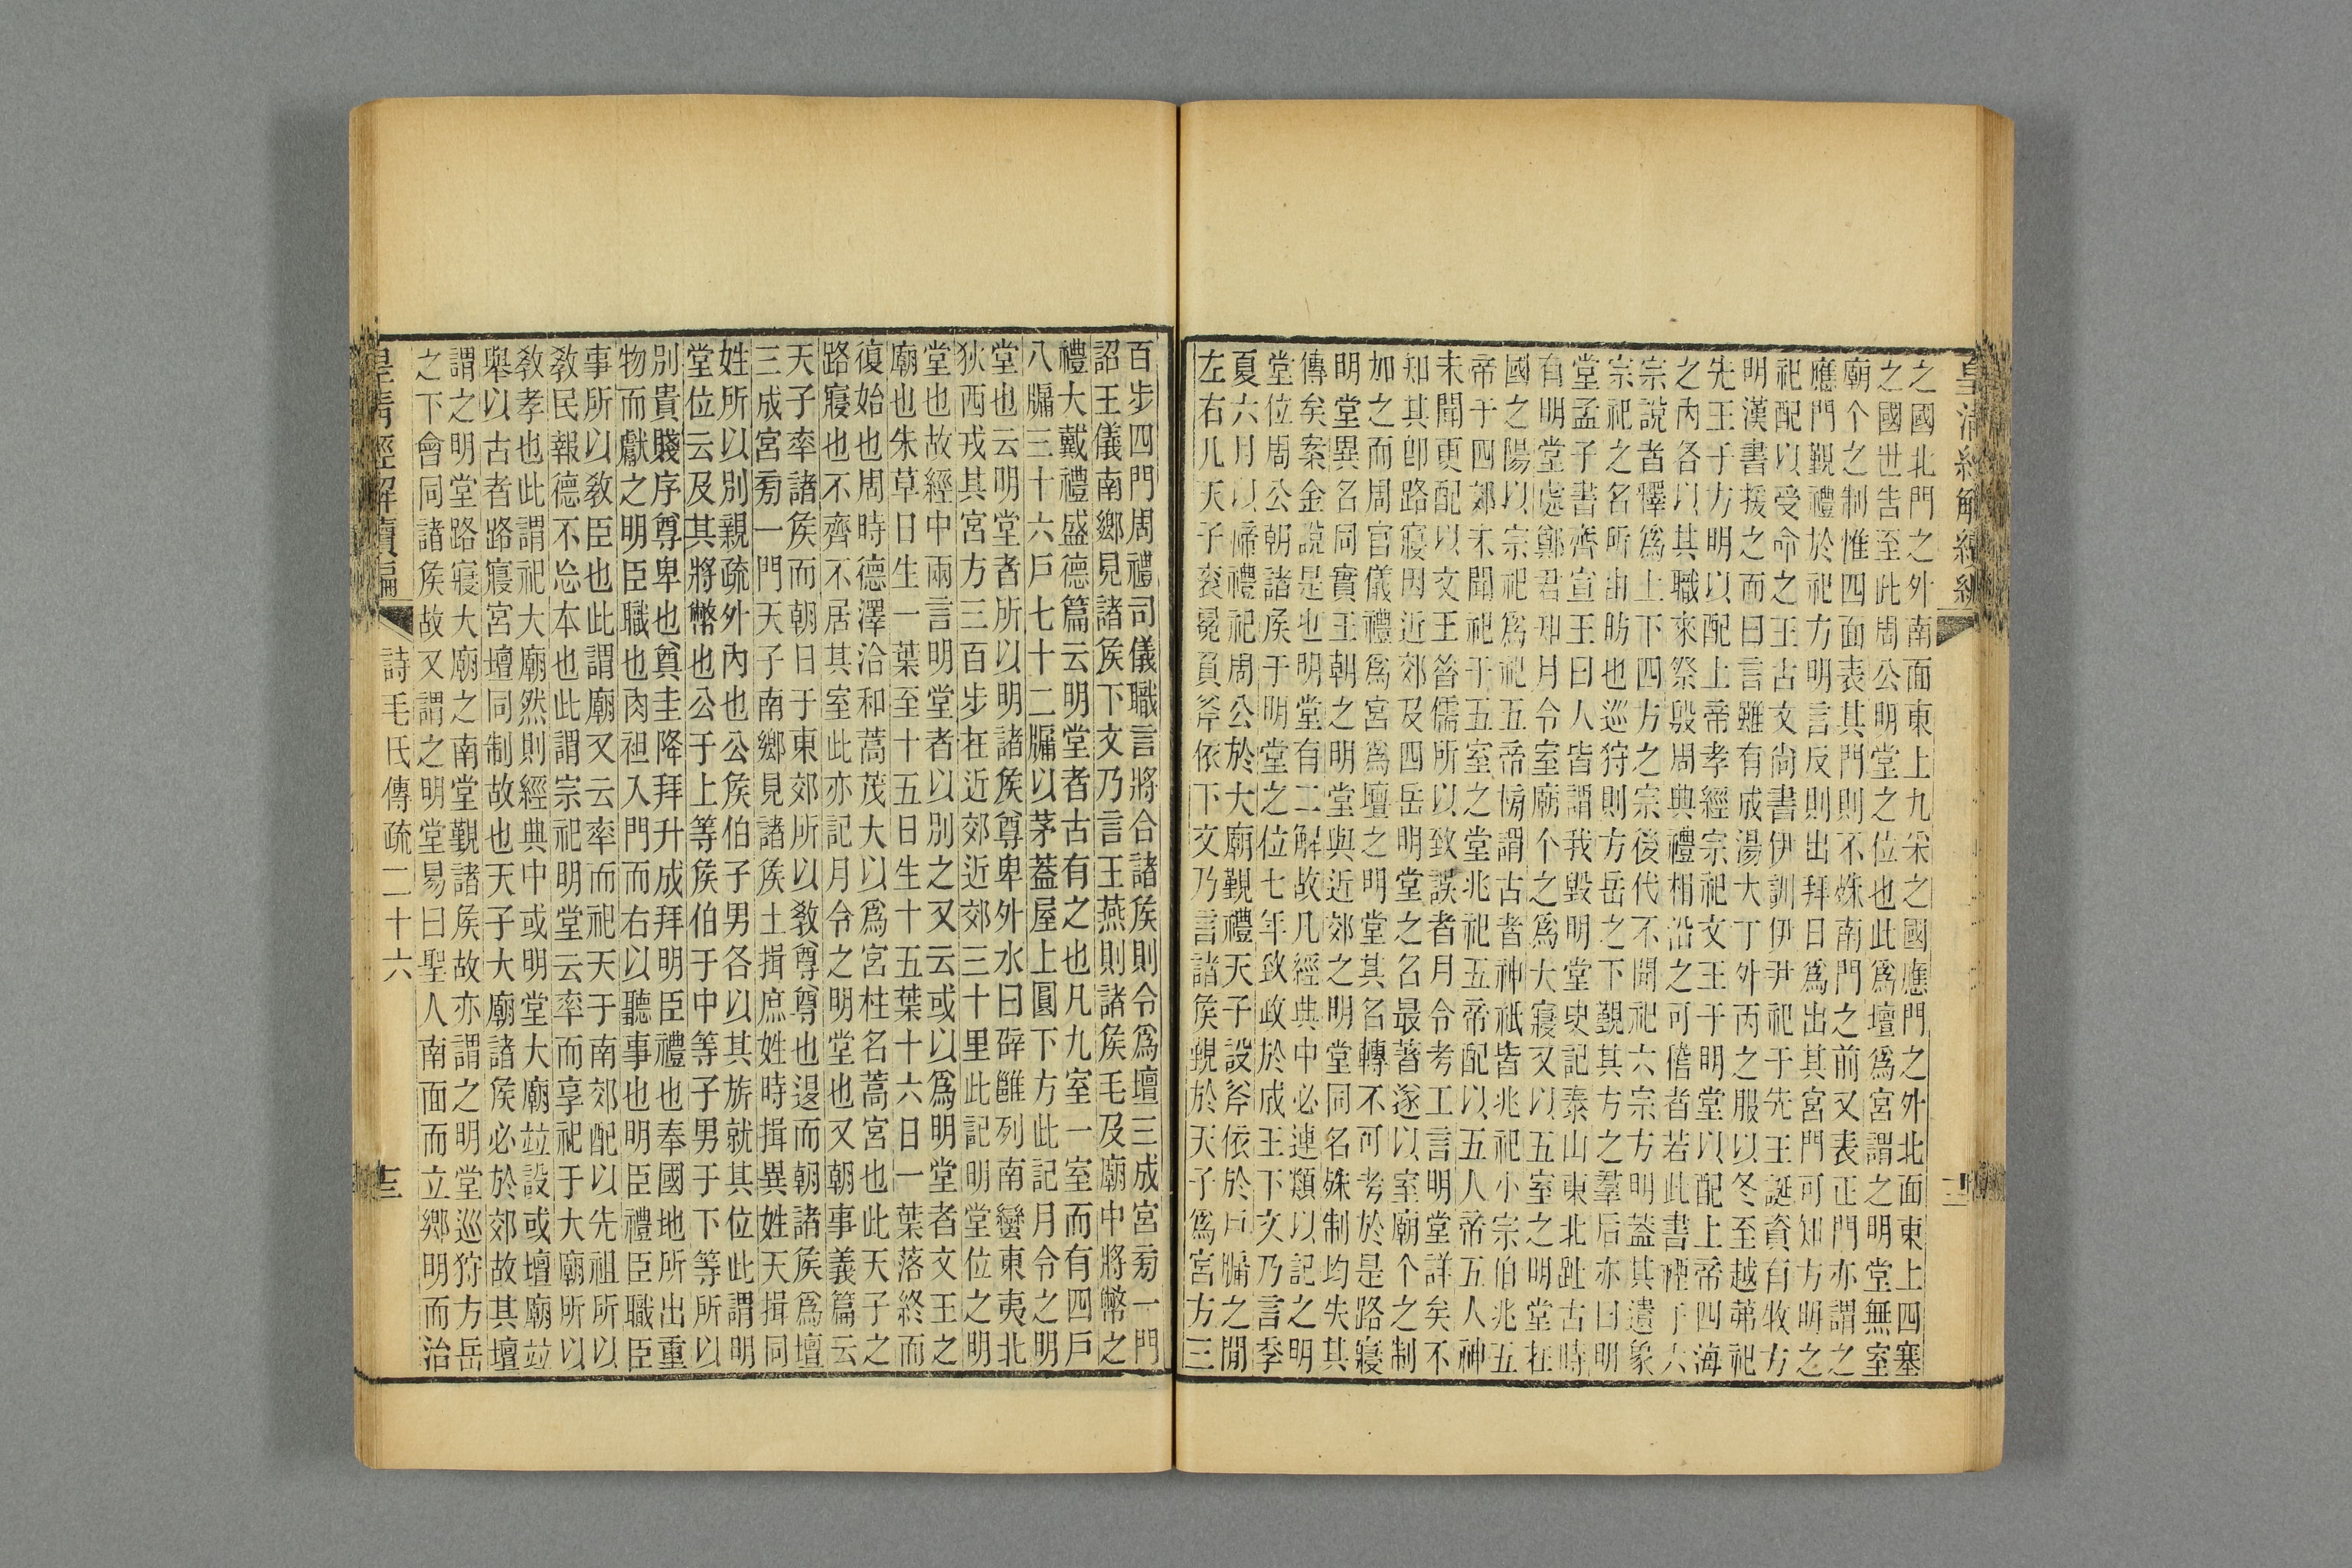 皇清經解續編
之國北門之外南面東上九采之國應門之外北面東上四塞
之國世告至此周公明堂之位也此爲壇爲宮謂之明堂無室
廟个之制惟四面表其門則不姝南門之前又表正門亦謂之
應門覲禮於祀方明言反則出拜日爲出其宮門可知方明之
祀配以受命之王古文尙書伊訓伊尹祀于先王誕資有牧方
明漢書援之而曰言雖有成湯大丁外丙之服以冬至越茀祀
先王于方明以配上帝孝經宗祀文王于明堂以配上帝四海
之內各以其職來祭殷周典禮相沿之可信者若此書禋于六
宗說者釋爲上下四方之宗後代不聞祀六宗方明蓋其遺象
宗祀之名所由昉也巡狩則方岳之下覲其方之羣后亦曰明
堂孟子書齊宣王曰人皆謂我毀明堂史記泰山東北阯古時
有明堂處鄭君知月令室廟个之爲大寢又以五室之明堂在
國之陽以宗祀爲祀五帝謂古者神祇皆兆祀小宗伯兆五
帝于四郊未聞祀于五室之堂兆祀五帝配以五人帝五人神
未聞更配以文王晉儒所以致誤者月令考工言明堂詳矣不
知其卽路寢因近郊及四岳明堂之名最著遂以室廟个之制
加之而周官儀禮爲宮爲壇之明堂其名轉不可考於是路寢
明堂異名同實王朝之明堂與近郊之明堂同名姝制均失其
傳矣案金說是也明堂有二解故凡經典中必連類以記之明
堂位周公朝諸矦于明堂之位七年致政於成王下文乃言季
夏六月以禘禮祀周公於大廟覲禮天子設斧依於戶牖之閒
左右几天子衮冕負斧依下文乃言諸矦覲於天子爲宮方三
百步四門周禮司儀職言將合諸矦則令爲壇三成宮㫄一門
詔王儀南鄉見諸矦下文乃言王燕則諸矦毛及廟中將幣之
禮大戴禮盛德篇云明堂者古有之也凡九室一室而有四戶
八牖三十六戶七十二牖以茅蓋屋上圓下方此記月令之明
堂也云明堂者所以明諸矦尊卑外水曰辟雝列南蠻東夷北
狄西戎其宮方三百步在近郊近郊三十里此記明堂位之明
堂也故經中兩言明堂者以別之又云或以爲明堂者文王之
廟也朱草日生一葉至十五日生十五葉十六日一葉落終而
復始也周時德澤洽和蒿茂大以爲宮柱名蒿宮也此天子之
路寢也不齊不居其室此亦記月令之明堂也又朝事義篇云
天子率諸矦而朝日于東郊所以敎尊尊也退而朝諸矦爲壇
三成宮㫄一門天子南鄉見諸矦土揖庶姓時揖異姓天揖同
姓所以別親疏外內也公矦伯子男各以其旂就其位此謂明
堂位云及其將幣也公于上等矦伯于中等子男于下等所以
別貴賤序尊卑也奠圭降拜升成拜明臣禮也奉國地所出重
物而獻之明臣職也肉袒入門而右以聽事也明臣禮臣職臣
事所以敎臣也此謂廟又云率而祀天于南郊配以先祖所以
敎民報德不忘本也此謂宗祀明堂云率而享祀于大廟所以
敎孝也此謂祀大廟然則經典中或明堂大廟竝設或壇廟竝
舉以古者路寢宮壇同制故也天子大廟諸矦必於郊故其壇
謂之明堂路寢大廟之南堂覲諸矦故亦謂之明堂巡狩方岳
之下會同諸矦故又謂之明堂易曰聖人南面而立鄉明而治
皇淸經解續編 詩毛氏傳疏二十六